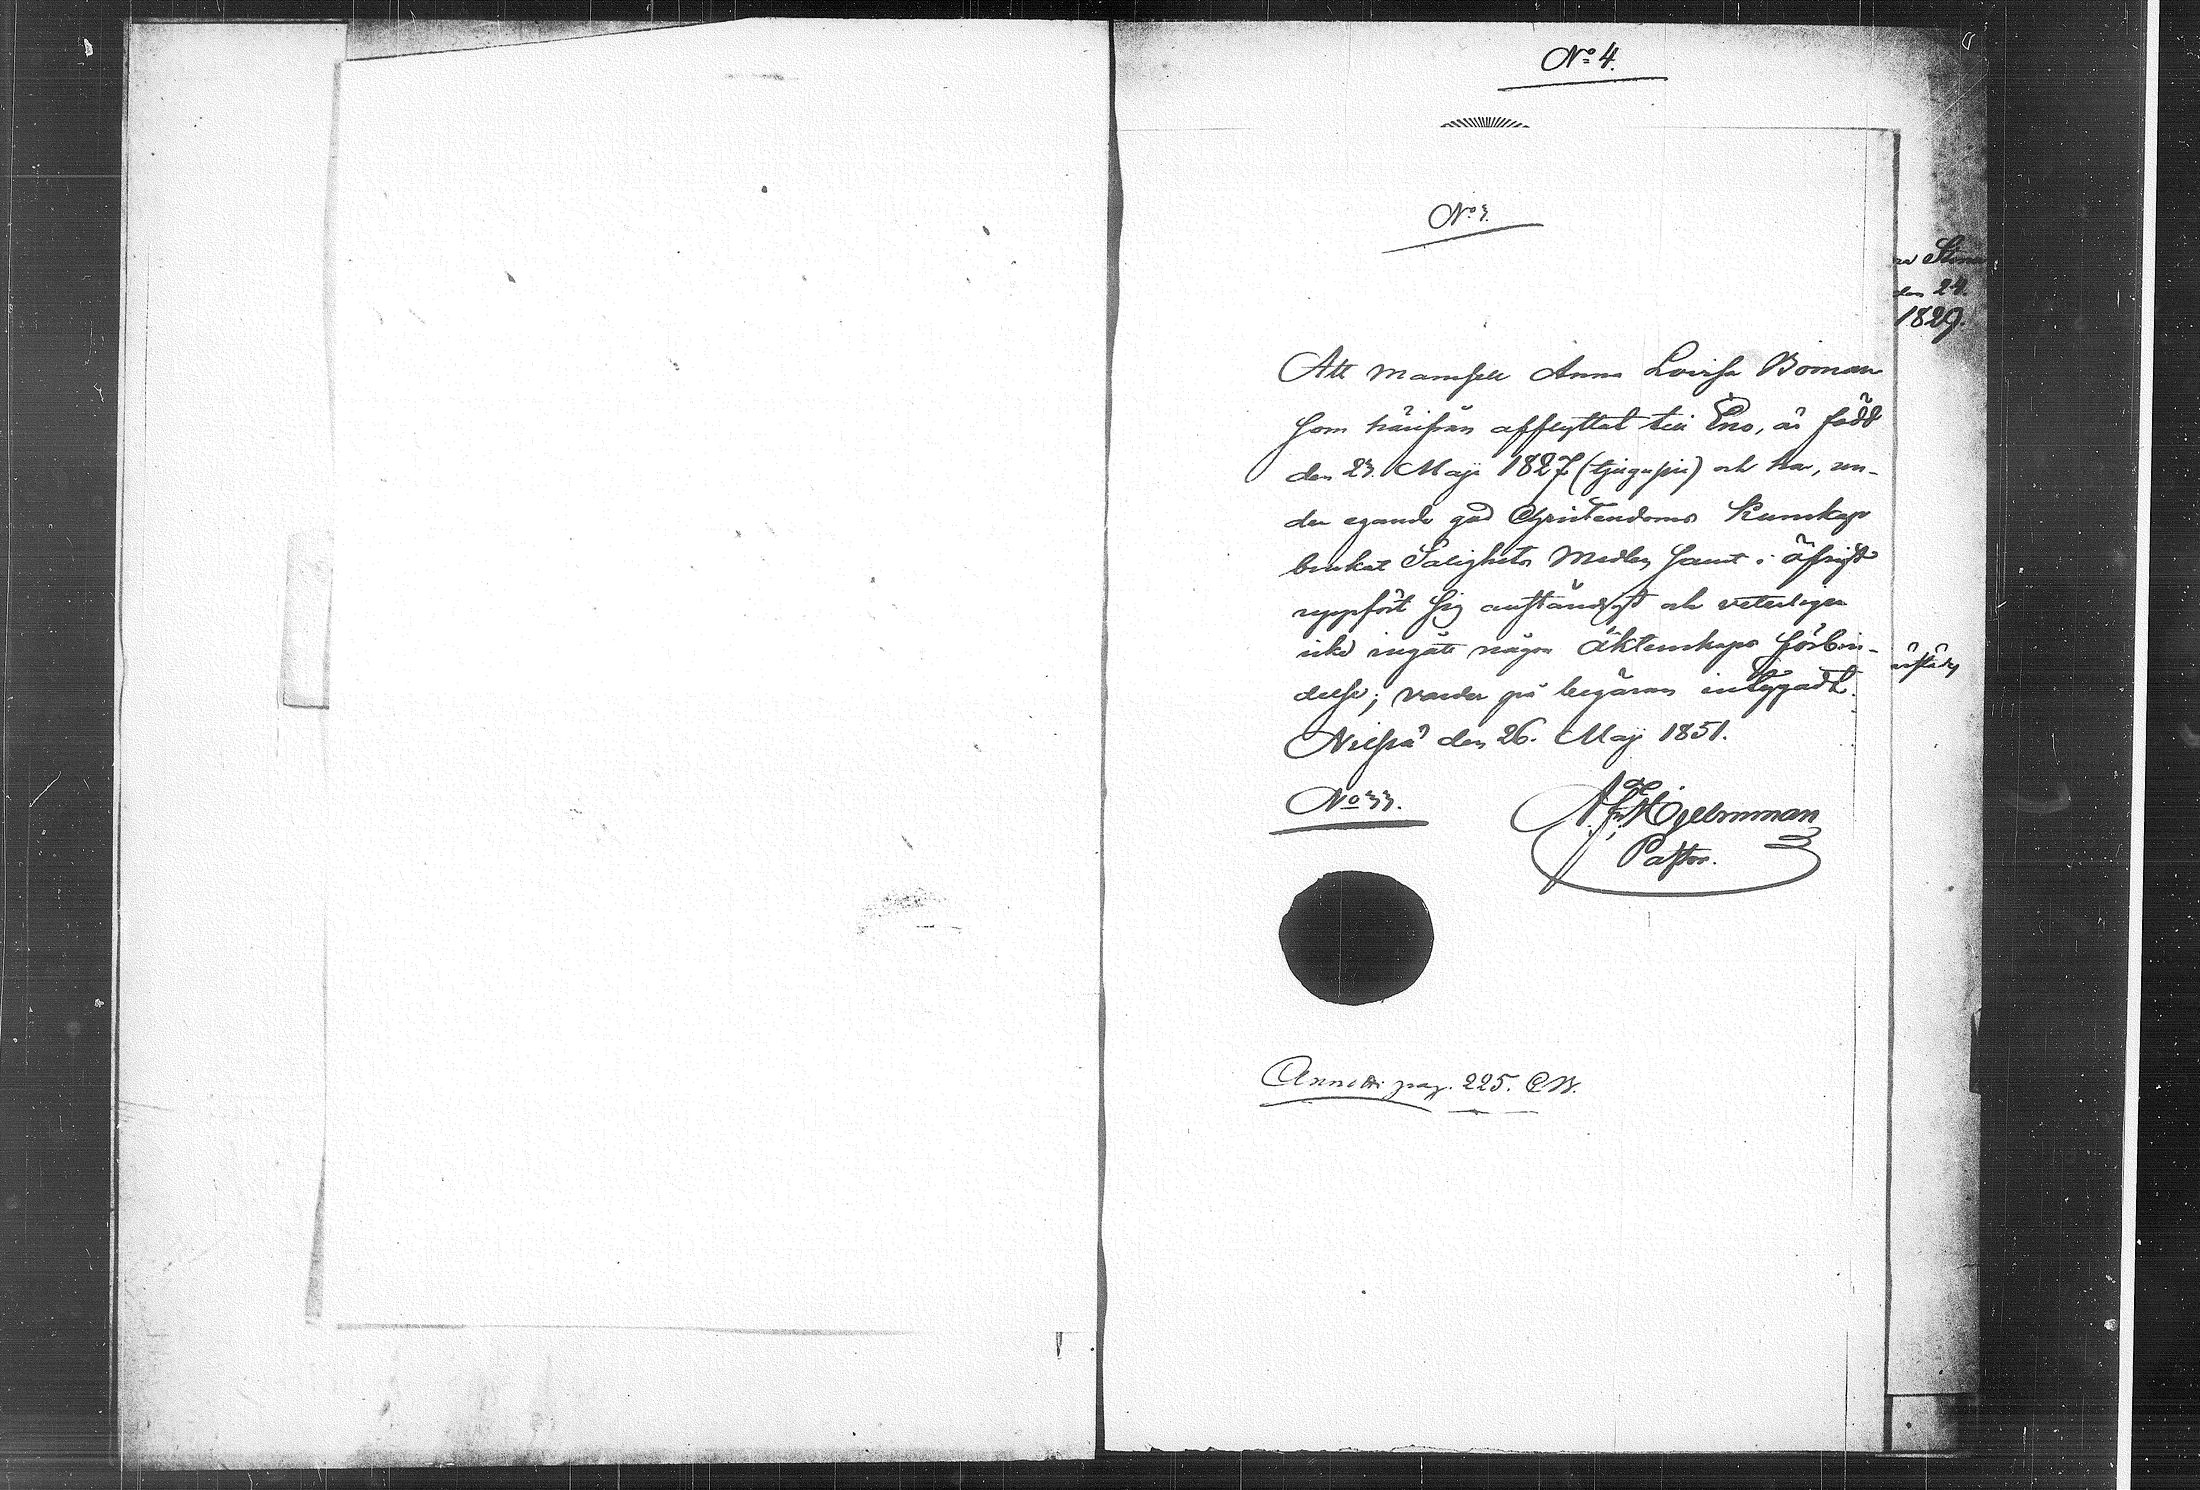 No 4.
No 3.
Att Mamsell Anna Lovisa Boman
som härifrån afflyttat till Eno, är född
den 23. Maji 1827 (tjugusju) och har, un-
der egande god Christendoms Kunskap
brukat Salighets Medlen samt i öfrigt
uppfört sig anständigt och veterligen
icke ingått någon Äktenskaps förbin-
delse; varder på begäran intygadt.
Nilsiä den 26. Maji 1851.
No 33.
Hjelmman
Pastor.
Annott: pag. 225. C.W.
den 24.
1829.